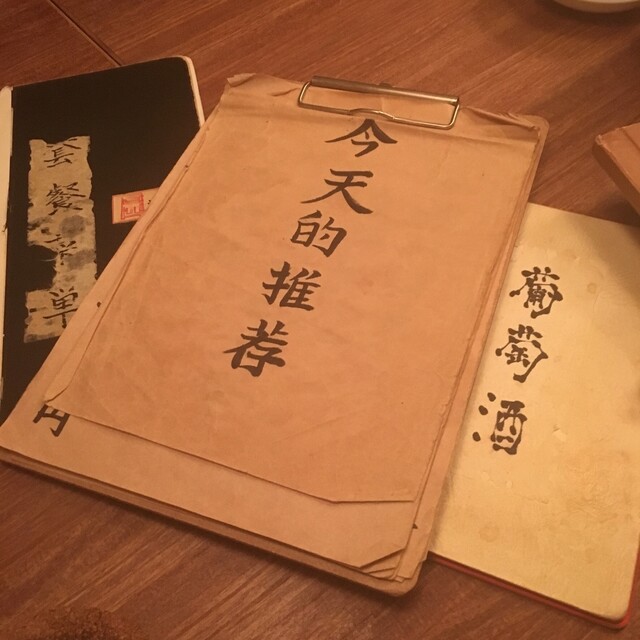 套餐菜单
今天的推荐
葡萄酒